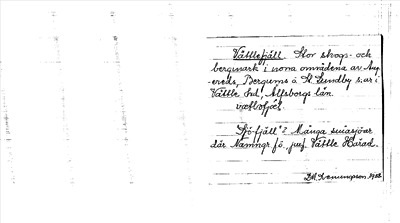 Vättlefjäll. Stor skogs- och
bergmark i norra områdena av Ang-
ereds, Bergums o. St. Lundby s:ar i
Vättle hd, Älfsborgs län.
vætləfjæl.
Sjö-fjäll"? Många småsjöar
där. Namngr. fö., jmf. Vättle Härad.